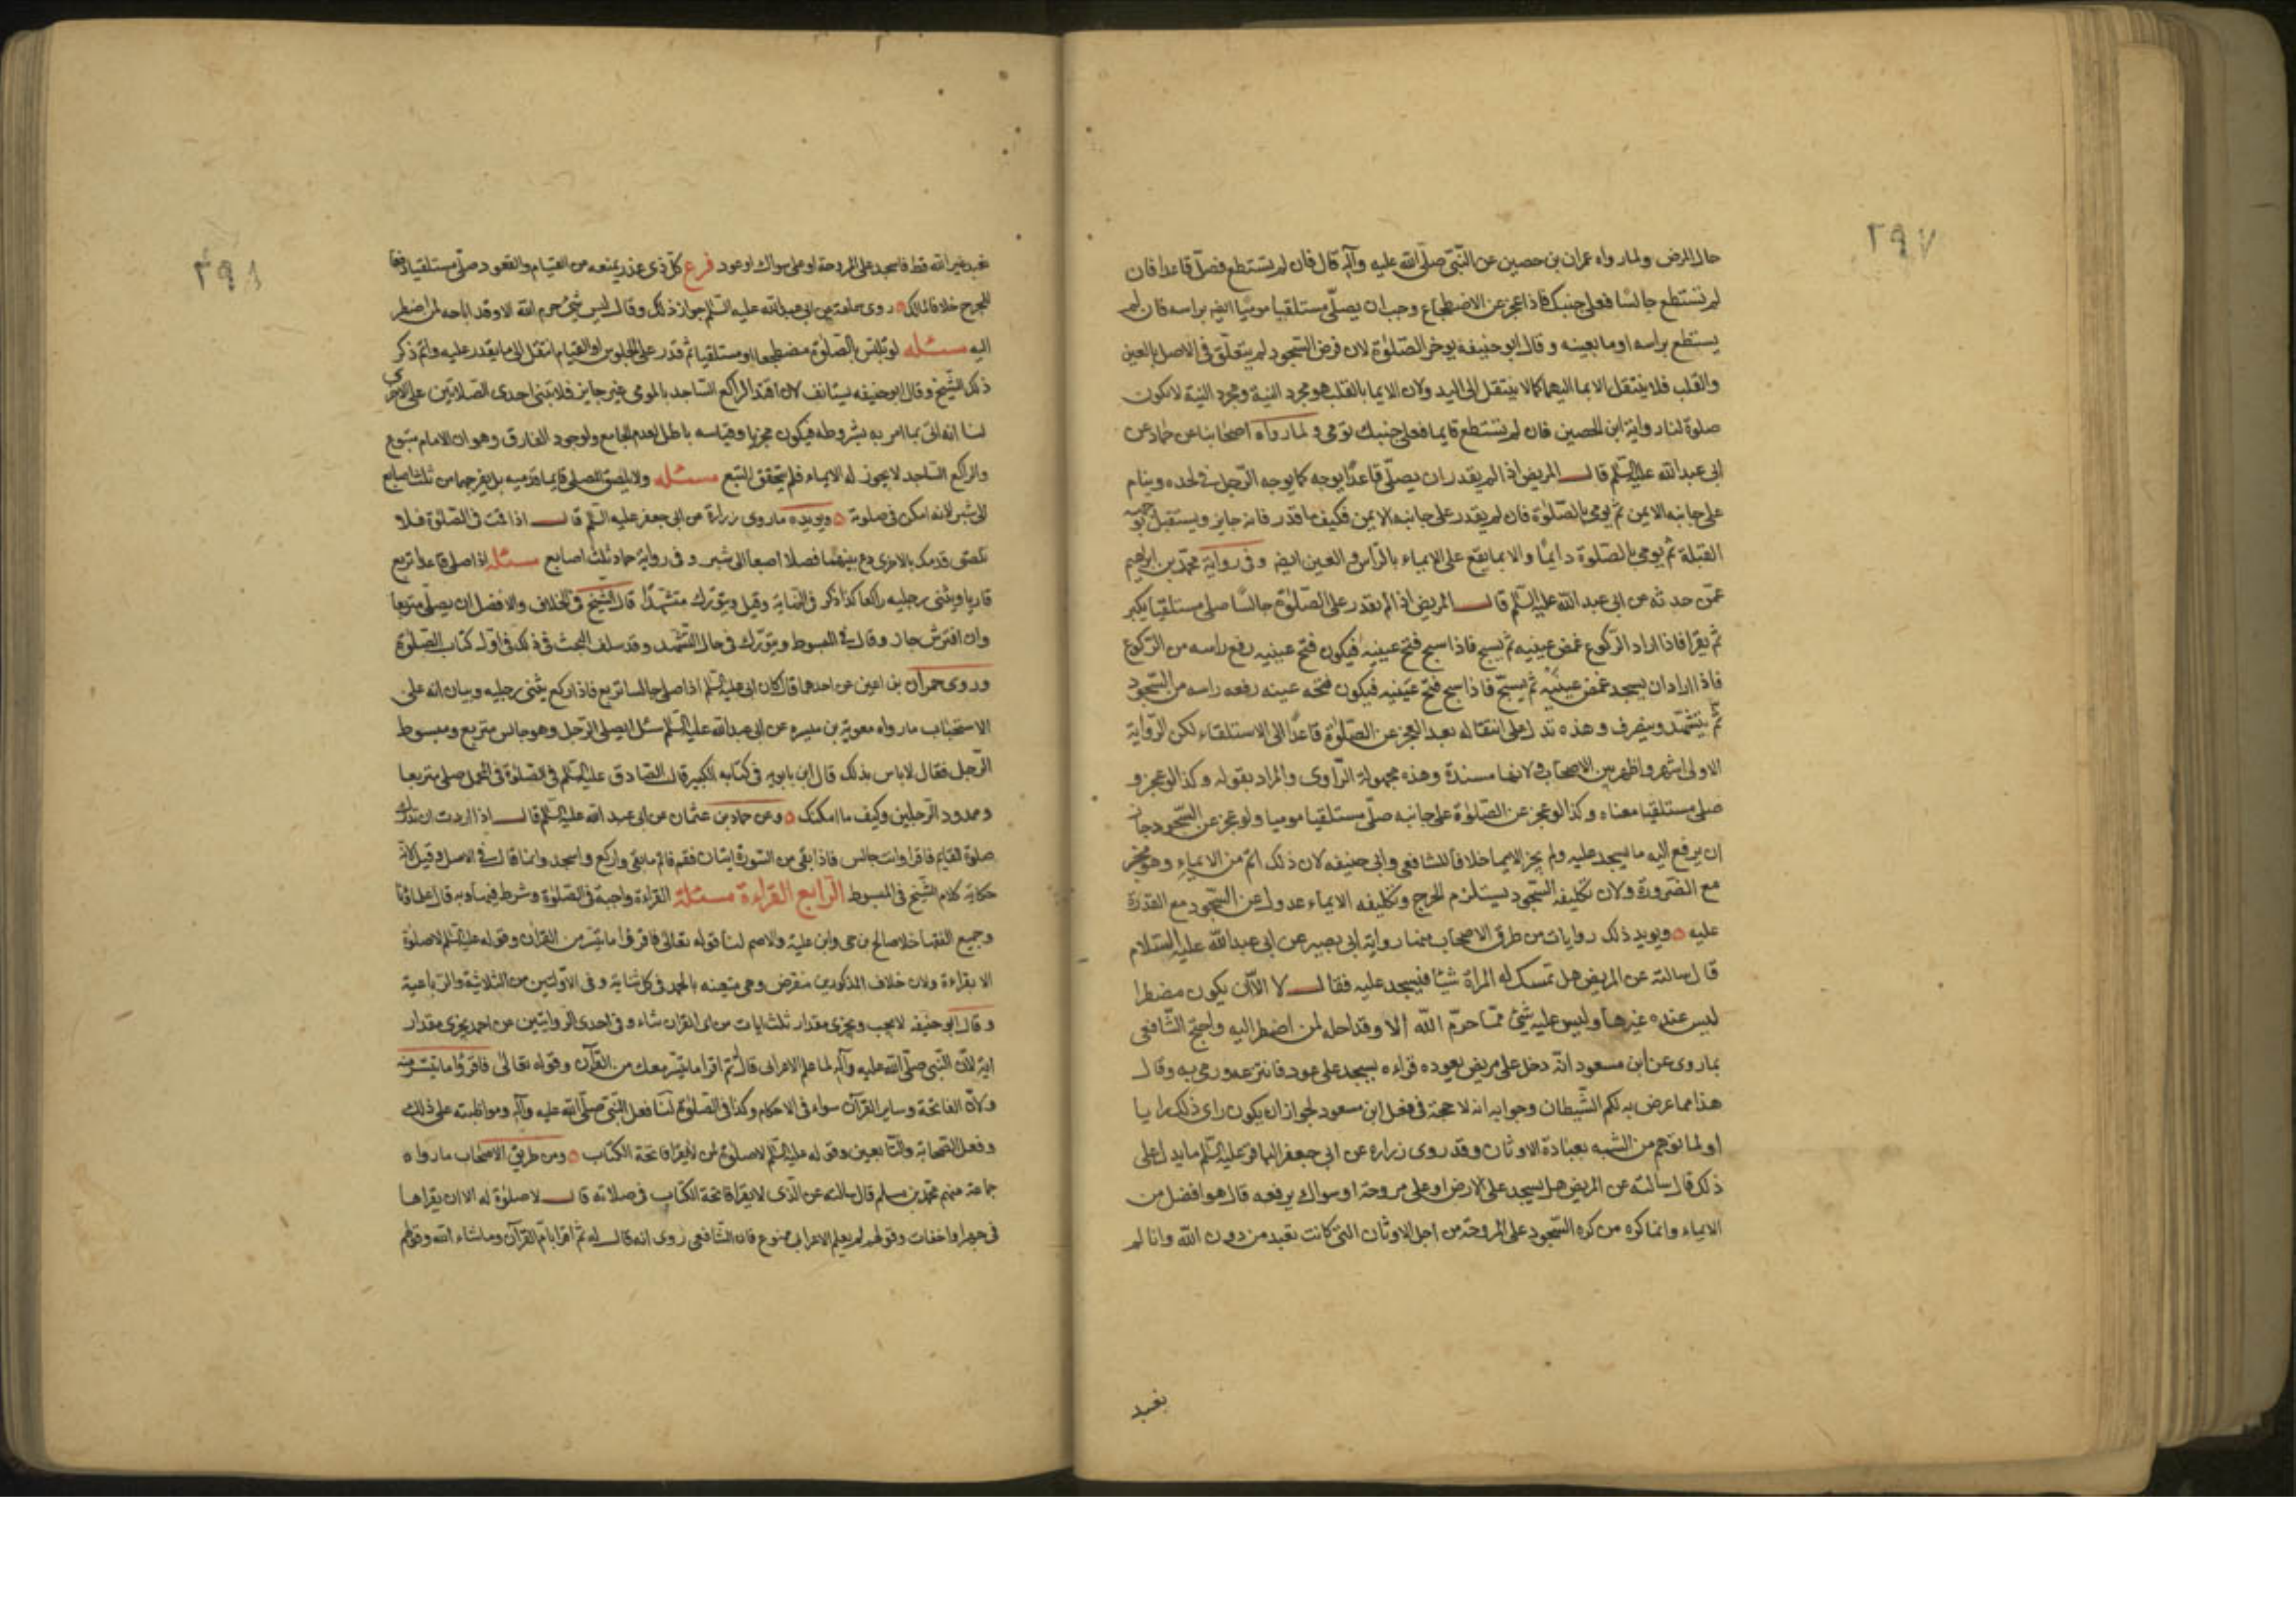 ٢٩٧
حال المرض ولما رواه عمران بن حصين عن النّبيّ صلّى الله عليه وآله قال فان لم تستطع فصلّ قاعدا فان
لم تستطع جالسًا فعلى جنبك فاذا عجز عن الاضطجاع وجب ان يصلّى مستلقيا موميًا ايضا براسه فان لم
يستطع براسه اوما بعينه وقال ابو حنيفه يوخر الصّلوة لان فرض السّجود لم يتعلّق فى الاصل بالعين
والقلب فلا ينتقل الايما اليهما كما لا ينتقل الى اليد ولان الايما بالقلب هو مجرد النية ومجرد النية لا تكون
صلوة لنا رواية ابن الحصين فان لم تستطع قايما فعلى جنبك تومى ولما رواه اصحابنا عن حماد عن
ابى عبد الله عليه السّلم قال المريض اذا لم يقدر ان يصلّى قاعدًا يوجه كما يوجه الرّجل فى لحده وينام
على جانبه الايمن ثم يومى بالصّلوة فان لم يقدر على جانبه الايمن فكيف ما قدر فانه جايز ويستقبل بوجهه
القبلة ثم يومى بالصّلوة دايمًا والايما يقع على الايماء بالرّاس والعين ايضا وفى رواية محمّد بن ابراهيم
عمّن حدثه عن ابى عبد الله عليه السّلم قال المريض اذا لم يقدر على الصّلوة جالسًا صلى مستلقيا يكبر
ثم يقرا فاذا اراد الرّكوع غمض عينيه ثم يسبح فاذا سبح فتح عينيه فيكون فتح عينيه رفع راسه من الرّكوع
فاذا اراد ان يسجد غمض عينيه ثم يسبّح فاذا سبح فتح عينيه فيكون فتحه عينه رفعه راسه من السّجود
ثم يتشهّد وينصرف وهذه تدل على انتقاله بعد العجز عن الصّلوة قاعدًا الى الاستلقاء لكن الرّواية
الاولى اشهر واظهر بين الاصحاب ولانها مسندة وهذه مجهولة الرّاوى والمراد بقوله وكذا لو عجز و
صلى مستلقيا معناه وكذا لو عجز عن الصّلوة على جانبه صلّى مستلقيا موميا ولو عجز عن السّجود جاز
ان يرفع اليه ما يسجد عليه ولم يجز الايما خلافا للشافعى وابى حنيفه لان ذلك اتم من الايماء وهو مجز
مع الضّرورة ولان تكليفه السّجود يستلزم الحرج وتكليفه الايماء عدول عن السّجود مع القدرة
عليه ويويد ذلك روايات من طرق الاصحاب منها رواية ابى بصير عن ابى عبد الله عليه السّلام
قال سالته عن المريض هل تمسك له المراة شيئا فيسجد عليه فقال لا الا ان يكون مضطرا
ليس عنده غيرها وليس عليه شئ ممّا حرّم الله الا وقد احله لمن اضطر اليه واحتج الشّافعى
بما روى عن ابن مسعود انّه دخل على مريض يعوده فراه يسجد على عود فانتزعه ورمى به وقال
هذا مما عرض به لكم الشّيطان وجوابه انه لا حجة فى فعل ابن مسعود لجواز ان يكون راى ذلك رايا
او لما توهم من الشبه بعبادة الاوثان وقد روى زراره عن ابى جعفر الباقر عليه السّلم ما يدل على
ذلك قال سالته عن المريض هل يسجد على الارض او على مروحة او سواك يرفعه قال هو افضل من
الايماء وانما كره من كره السّجود على المروحة من اجل الاوثان التى كانت تعبد من دون الله وانا لم
نعبد
٢٩٨
نعبد غير الله قط فاسجد على المروحة او على سواك او عود فرع كلّ ذى عذر يمنعه من القيام والقعود صلّى مستلقيا دفعا
للحرج خلافا لمالك روى سماعة عن ابى عبد الله عليه السّلم جواز ذلك وقال ليس شئ حرم الله الا وقد اباحه لمن اضطر
اليه مسئله لو تلبّس بالصّلوة مضطجعا او مستلقيا ثم قدر على الجلوس او القيام انتقل الى ما يقدر عليه واتم ذكر
ذلك الشّيخ وقال ابو حنيفه يستانف لان اقتدا الراكع السّاجد بالمومى غير جايز فلا تبنى احدى الصّلاتين على الاخرى
لنا انه اتى بما امر به بشروطه فيكون مجزيا وقياسه باطل لعدم الجامع ولوجود الفارق وهو ان الامام متبوع
والراكع السّاجد لا يجوز له الايماء فلم يتحقق التبع مسئله ولا يلصق المصلى قايما قدميه بل يفرجهما من ثلث اصابع
الى شبر لانه امكن فى صلوته ويويده ما روى زرارة عن ابى جعفر عليه السّلم قال اذا قمت فى الصّلوة فلا
تلصق قدمك بالاخرى دع بينهما فصلا اصبعا الى شبر وفى رواية حماد ثلث اصابع مسئله اذا صلى قاعدا تربع
قاريا ويثنى رجليه راكعا كذا ذكر فى النّهاية وقيل ويتورّك متشهّدًا قال الشّيخ فى الخلاف والافضل ان يصلّى متربعا
وان افترش جاز وقال فى المبسوط ويتورّك فى حال التّشهّد وقد سلف البحث فى ذلك فى اول كتاب الصّلوة
وروى حمران بن اعين عن احدهما قال كان ابى عليه السّلم اذا صلى جالسا تربع فاذا ركع يثنى رجليه وبيان انه على
الاستحباب ما رواه معوية بن ميسره عن ابى عبد الله عليه السّلم سئل ايصلى الرّجل وهو جالس متربع ومبسوط
الرّجل فقال لا باس بذلك قال ابن بابويه فى كتابه الكبير قال الصّادق عليه السّلم فى الصّلوة فى المحمل صلى متربعا
وممدود الرّجلين وكيف ما امكنك وعن حماد بن عثمان عن ابى عبد الله عليه السّلم قال اذا اردت ان تدرك
صلوة القايم فاقرا وانت جالس فاذا بقى من السّورة ايتان فقم فاتم ما بقى واركع واسجد وانما قال فى الاصل وقيل لانه
حكاية كلام الشّيخ فى المبسوط الرّابع القراءة مسئلة القراءة واجبة فى الصّلوة وشرط فيها وبه قال علماؤنا
وجميع الفقها خلا صالح بن حى وابن علية والاصم لنا قوله تعالى فاقرؤا ما تيسّر من القران وقوله عليه السّلم لا صلوة
الا بقراءة ولان خلاف المذكورين منقرض وهى متعينه بالحمد فى كل ثناية وفى الاوّلتين من الثلاثية والرّباعية
وقال ابو حنيفه لا يجب ويجزى مقدار ثلث ايات من اى القران شاء وفى احدى الروايتين عن احمد يجزى مقدار
اية لانّ النّبى صلّى الله عليه وآله لما علم الاعرابى قال ثم اقرا ما تيسّر معك من القرآن وقوله تعالى فاقرؤا ما تيسّر منه
ولانّ الفاتحة وساير القرآن سواء فى الاحكام وكذا فى الصّلوة لنا فعل النّبىّ صلّى الله عليه وآله ومواظبته على ذلك
وفعل الصّحابة والتّابعين وقوله عليه السّلم لا صلوة لمن لا يقرا فاتحة الكتاب ومن طريق الاصحاب ما رواه
جماعة منهم محمّد بن مسلم قال سالته عن الّذى لا يقرا فاتحة الكتاب فى صلاته قال لا صلوة له الا ان يقراها
فى جهر او اخفات وقولهم لم يعلم الاعرابى ممنوع فان الشّافعى روى انه قال له ثم اقرا بامّ القرآن وما شاء الله وقولهم